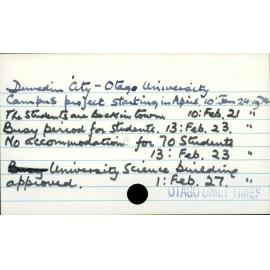 Dunedin City - Otago University
Campus project starting in April. 10: Jan 24. 1974
The Students are back in town. 10: Feb. 21 "
Busy period for Students. 13: Feb. 23. "
No accommodation for 70 Students
13: Feb. 23 "
University Science building
approved. 1: Feb. 27. "
OTAGO DAILY TIMES